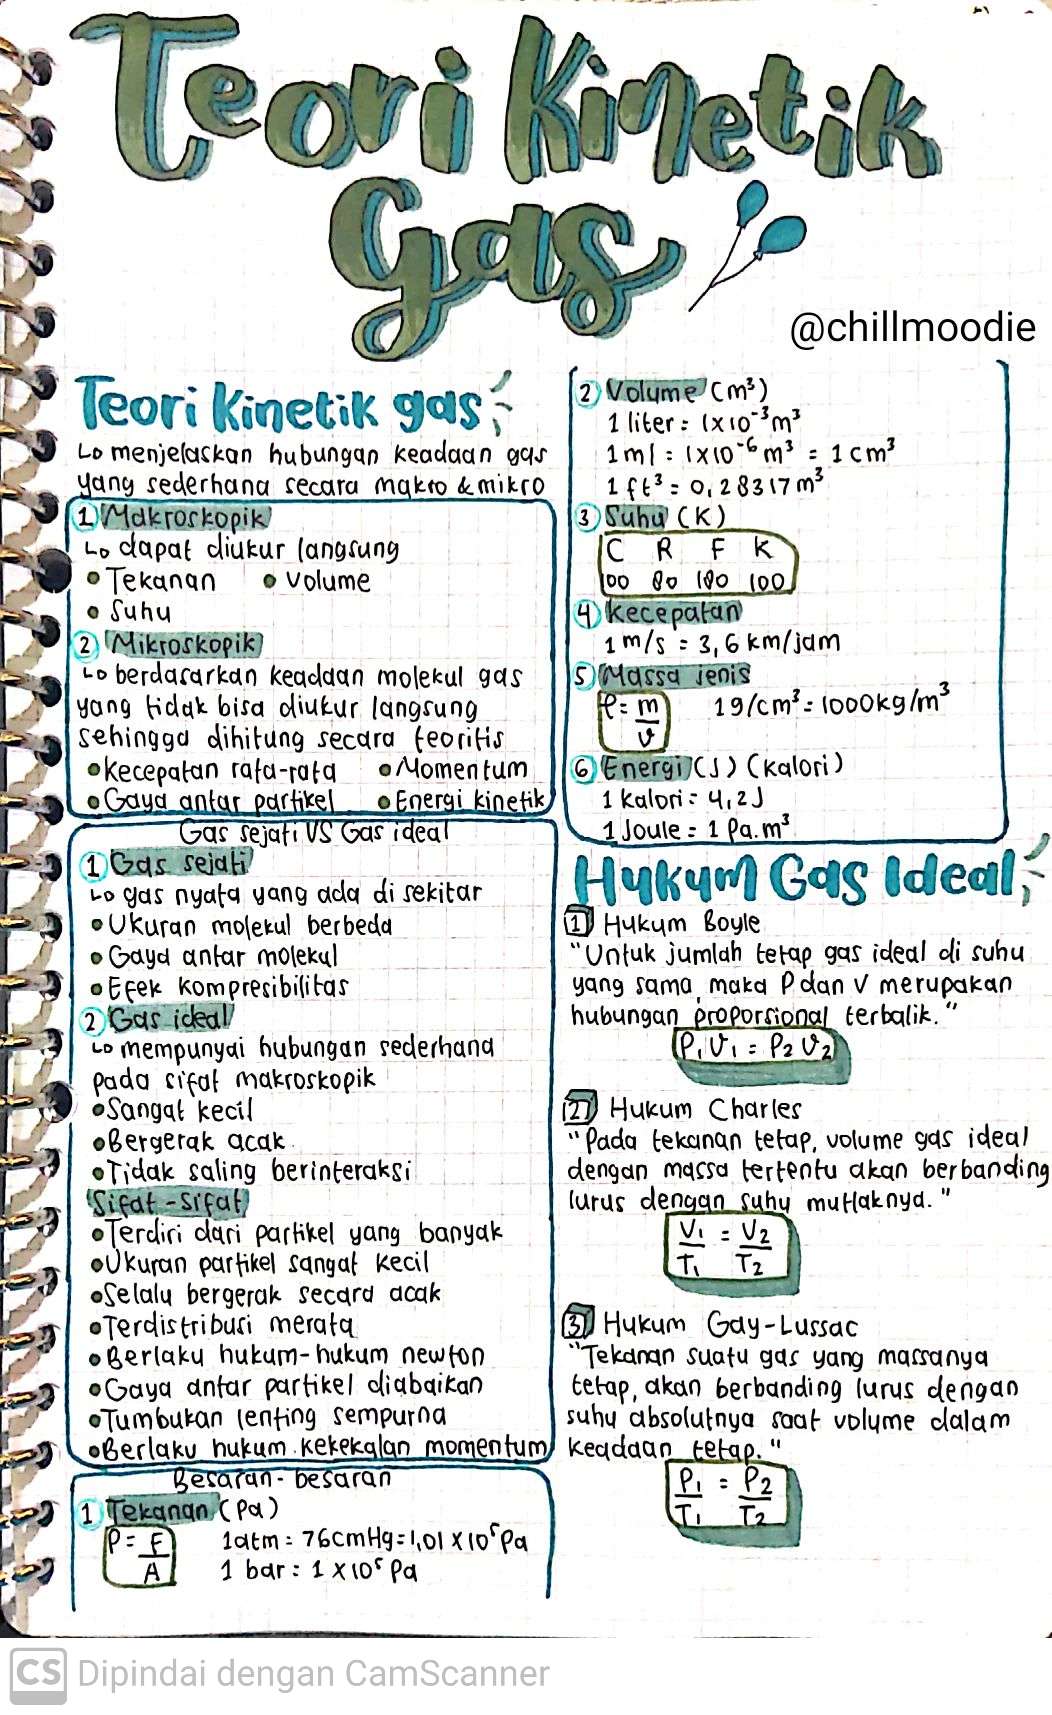 Teori Kinetik
Gas
@chillmoodie
Teori Kinetik gas
↳ menjelaskan hubungan keadaan gas
yang sederhana secara makro & mikro
1 Makroskopik
↳ dapat diukur langsung
• Tekanan • Volume
• Suhu
2 Mikroskopik
↳ berdasarkan keadaan molekul gas
yang tidak bisa diukur langsung
sehingga dihitung secara teoritis
• Kecepatan rata-rata • Momentum
• Gaya antar partikel • Energi kinetik
Gas sejati VS Gas ideal
1 Gas sejati
↳ gas nyata yang ada di sekitar
• Ukuran molekul berbeda
• Gaya antar molekul
• Efek kompresibilitas
2 Gas ideal
↳ mempunyai hubungan sederhana
pada sifat makroskopik
• Sangat kecil
• Bergerak acak
• Tidak saling berinteraksi
Sifat-sifat
• Terdiri dari partikel yang banyak
• Ukuran partikel sangat kecil
• Selalu bergerak secara acak
• Terdistribusi merata
• Berlaku hukum-hukum newton
• Gaya antar partikel diabaikan
• Tumbukan lenting sempurna
• Berlaku hukum kekekalan momentum
Besaran-besaran
1 Tekanan (Pa)
P = F/A 1 atm = 76 cmHg = 1,01 x 10⁵ Pa
1 bar = 1 x 10⁵ Pa
2 Volume (m³)
1 liter = 1x10⁻³ m³
1 ml = 1x10⁻⁶ m³ = 1 cm³
1 ft³ = 0,28317 m³
3 Suhu (K)
C R F K
100 80 180 100
4 Kecepatan
1 m/s = 3,6 km/jam
5 Massa jenis
ρ = m/v 1 g/cm³ = 1000 kg/m³
6 Energi (J) (Kalori)
1 kalori = 4,2 J
1 Joule = 1 Pa.m³
Hukum Gas Ideal
1 Hukum Boyle
"Untuk jumlah tetap gas ideal di suhu
yang sama, maka P dan V merupakan
hubungan proporsional terbalik."
P₁V₁ = P₂V₂
2 Hukum Charles
"Pada tekanan tetap, volume gas ideal
dengan massa tertentu akan berbanding
lurus dengan suhu mutlaknya."
V₁/T₁ = V₂/T₂
3 Hukum Gay-Lussac
"Tekanan suatu gas yang massanya
tetap, akan berbanding lurus dengan
suhu absolutnya saat volume dalam
keadaan tetap."
P₁/T₁ = P₂/T₂
CS Dipindai dengan CamScanner